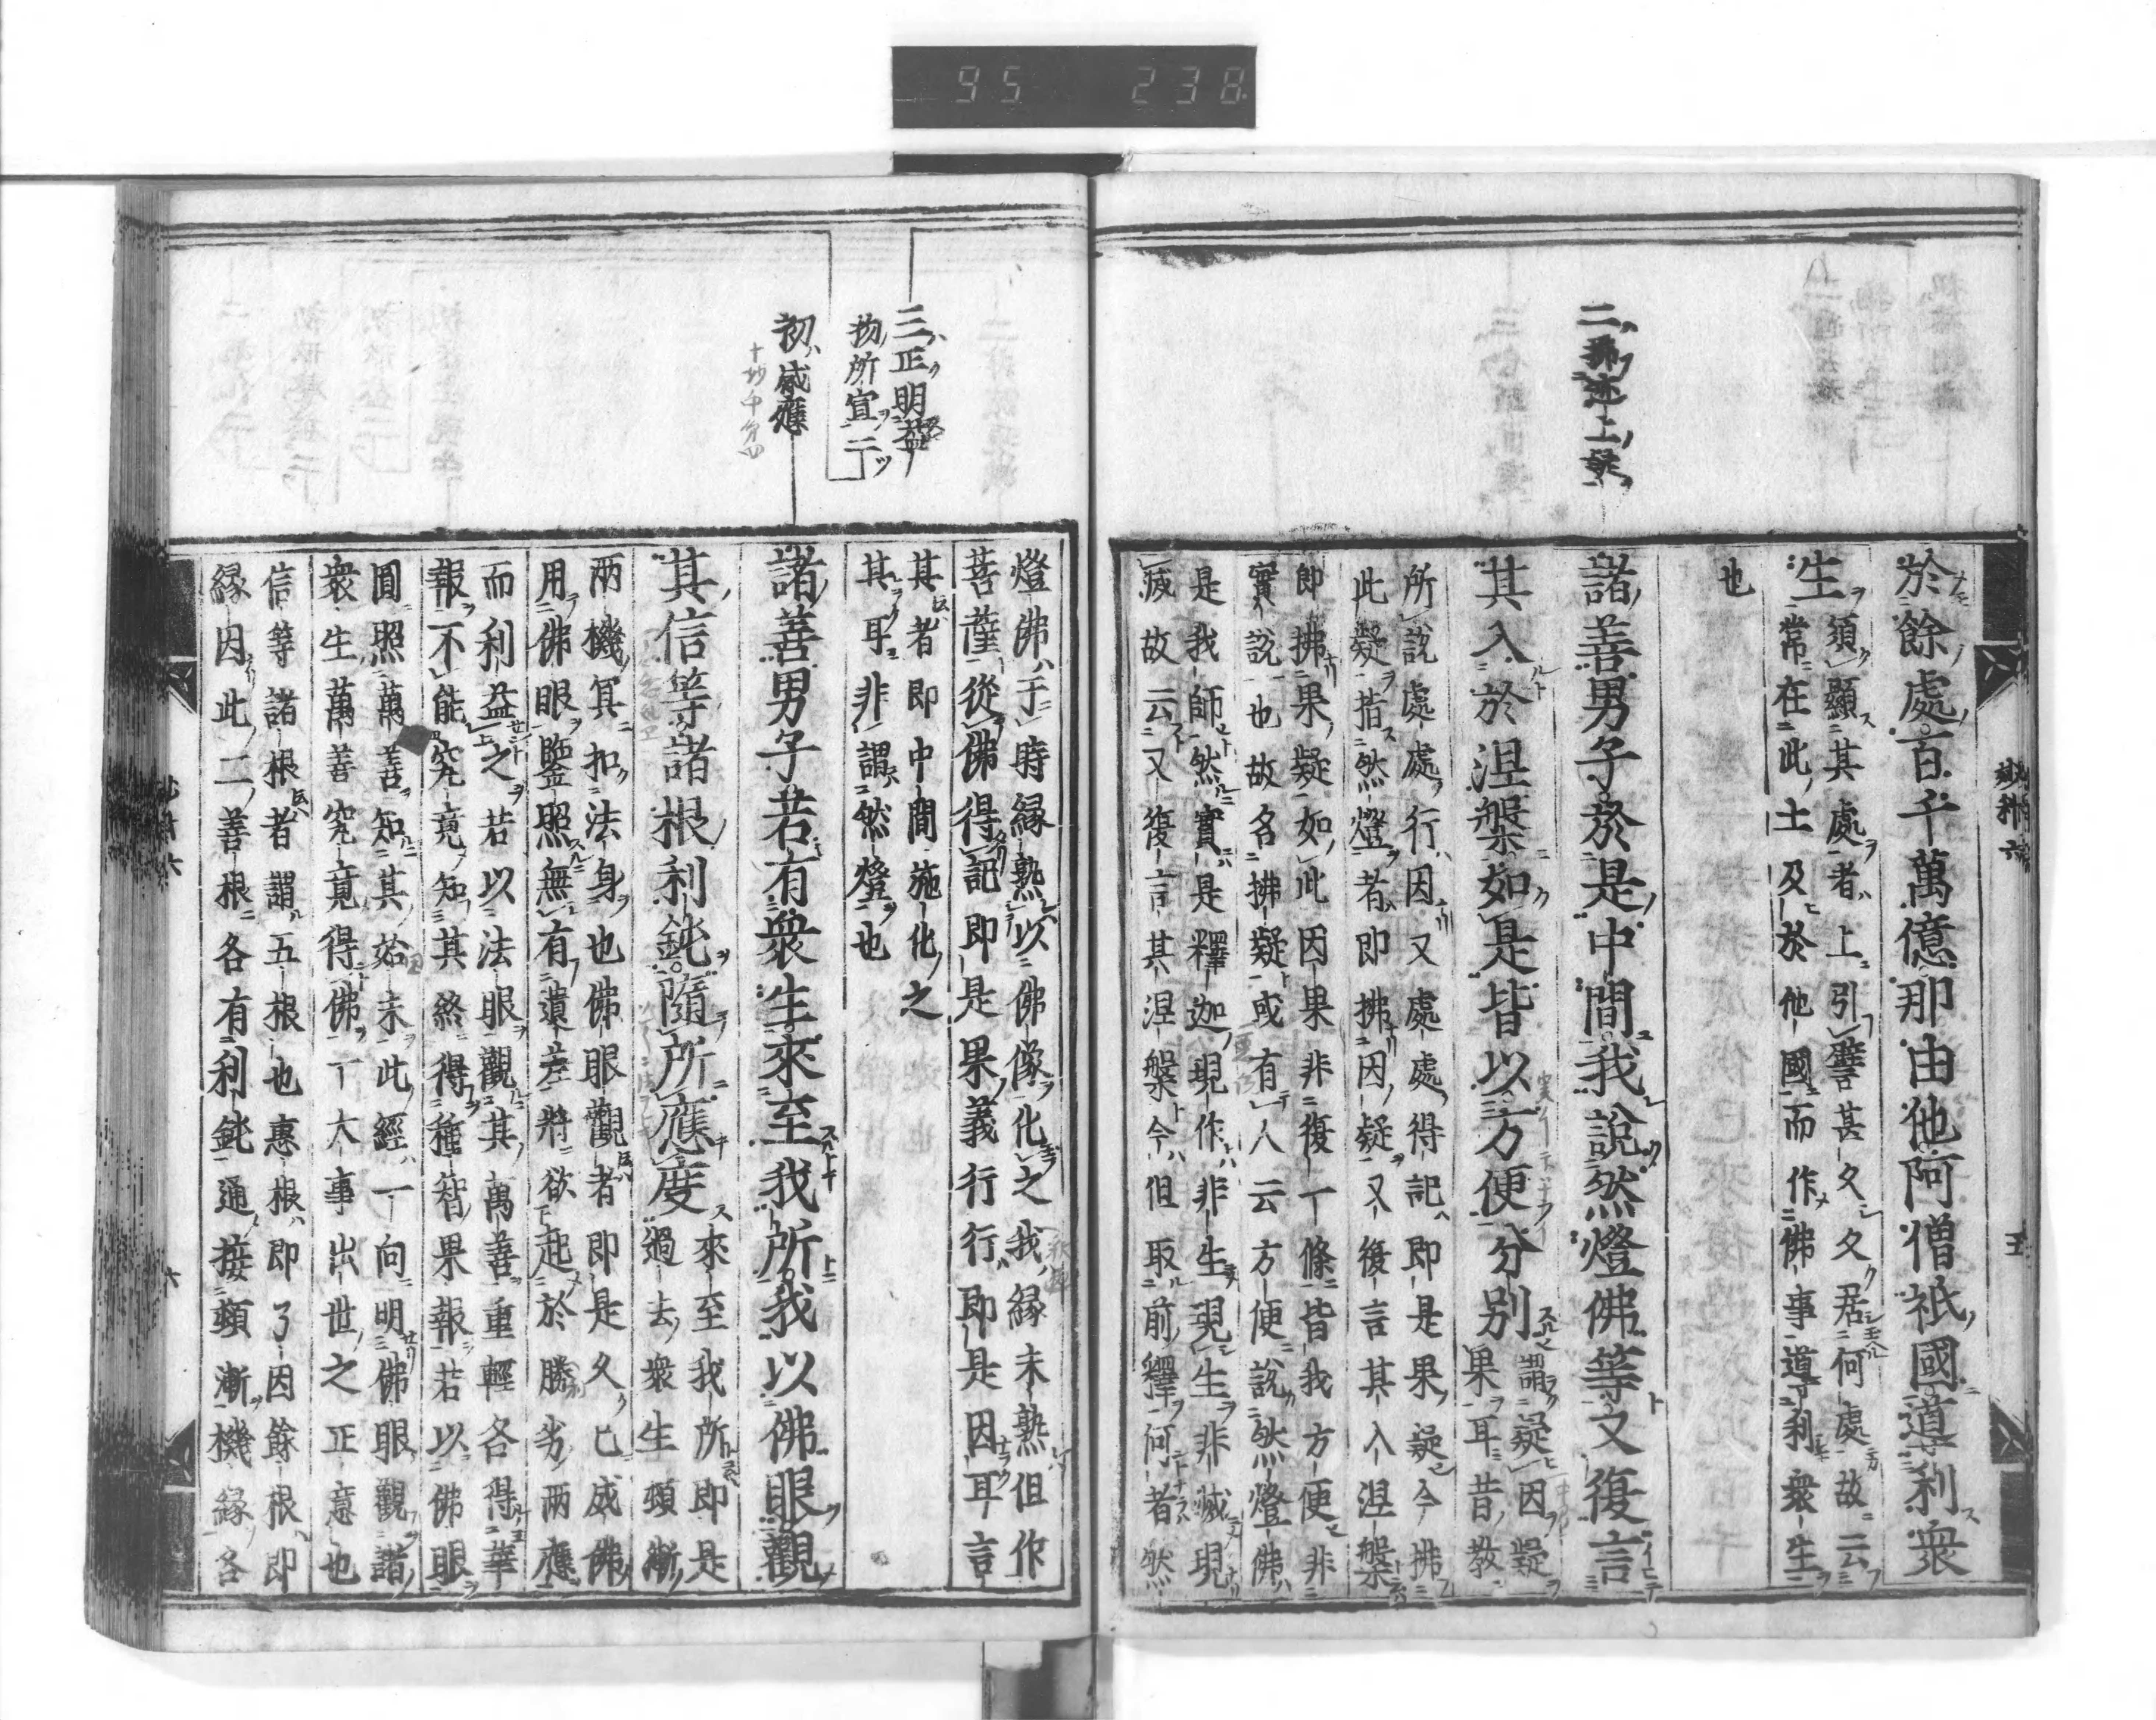 95 238
二拂迹上疑
於餘處百千萬億那由他阿僧祇國導利衆
生
須顯其處者上引譬甚久久居何處故云
常在此土及於他國而作佛事導利衆生
也
諸善男子於是中間我說然燈佛等又復言
其入於涅槃如是皆以方便分別
謂疑因疑
果耳昔教
所說處處行因又處處得記即是果疑今拂
此疑指然燈者即拂因疑又復言其入涅槃
即拂果疑如此因果非復一條皆我方便非
實說也故名拂疑或有人云方便說然燈佛
是我師然實是釋迦現作非生現生非滅現
滅故云又復言其涅槃今但取前釋何者然
三正明益
物所宜二
初感應
燈佛于時緣熟以佛像化之我緣未熟但作
菩薩從佛得記即是果義行行即是因耳言
其者即中間施化之
其耳非謂然燈也
諸善男子若有衆生來至我所我以佛眼觀
其信等諸根利鈍隨所應度
來至我所即是
過去衆生頓漸
兩機冥扣法身也佛眼觀者即是久已成佛
用佛眼鑒照無有遺差將欲起於勝劣兩應
而利益之若以法眼觀其萬善重輕各得華
報不能究竟知其終得種智果報若以佛眼
圓照萬善知其始末此經一向明佛眼觀諸
衆生萬善究竟得佛一大事出世之正意也
信等諸根者謂五根也惠根即了因餘根即
緣因此二善根各有利鈍通接頓漸機緣各